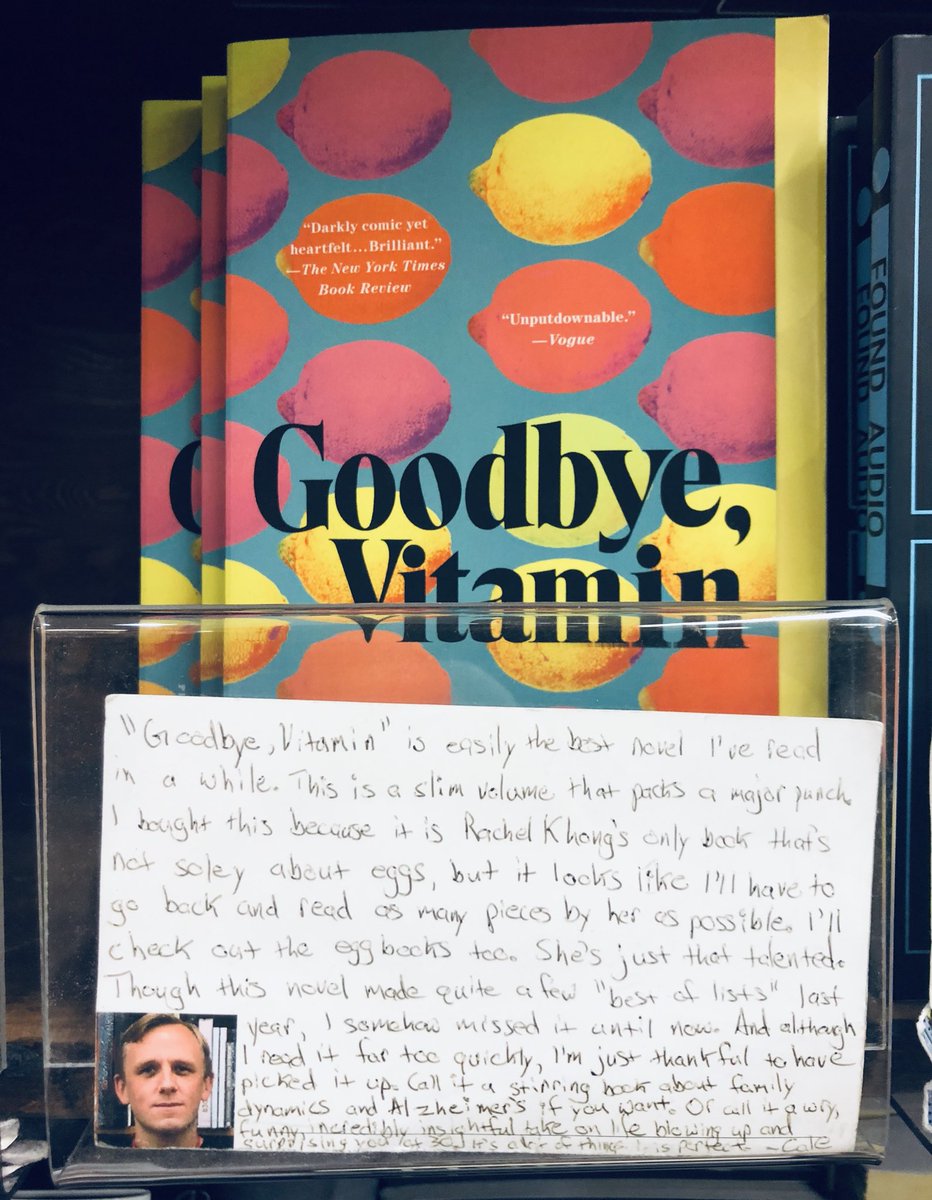 "Darkly comic yet
heartfelt...Brilliant."
—The New York Times
Book Review
"Unputdownable."
—Vogue
Goodbye,
Vitamin
FOUND AUDIO
FOUND AUDIO
"Goodbye, Vitamin" is easily the best novel I've read
in a while. This is a slim volume that packs a major punch.
I bought this because it is Rachel Khong's only book that's
not soley about eggs, but it looks like I'll have to
go back and read as many pieces by her as possible. I'll
check out the egg books too. She's just that talented.
Though this novel made quite a few "best of lists" last
year, I somehow missed it until now. And although
I read it far too quickly, I'm just thankful to have
picked it up. Call it a stirring book about family
dynamics and Alzheimer's if you want. Or call it a wry,
funny incredibly insightful take on life blowing up and
surprising you at 30. It's a lot of things. It is perfect. - Cale